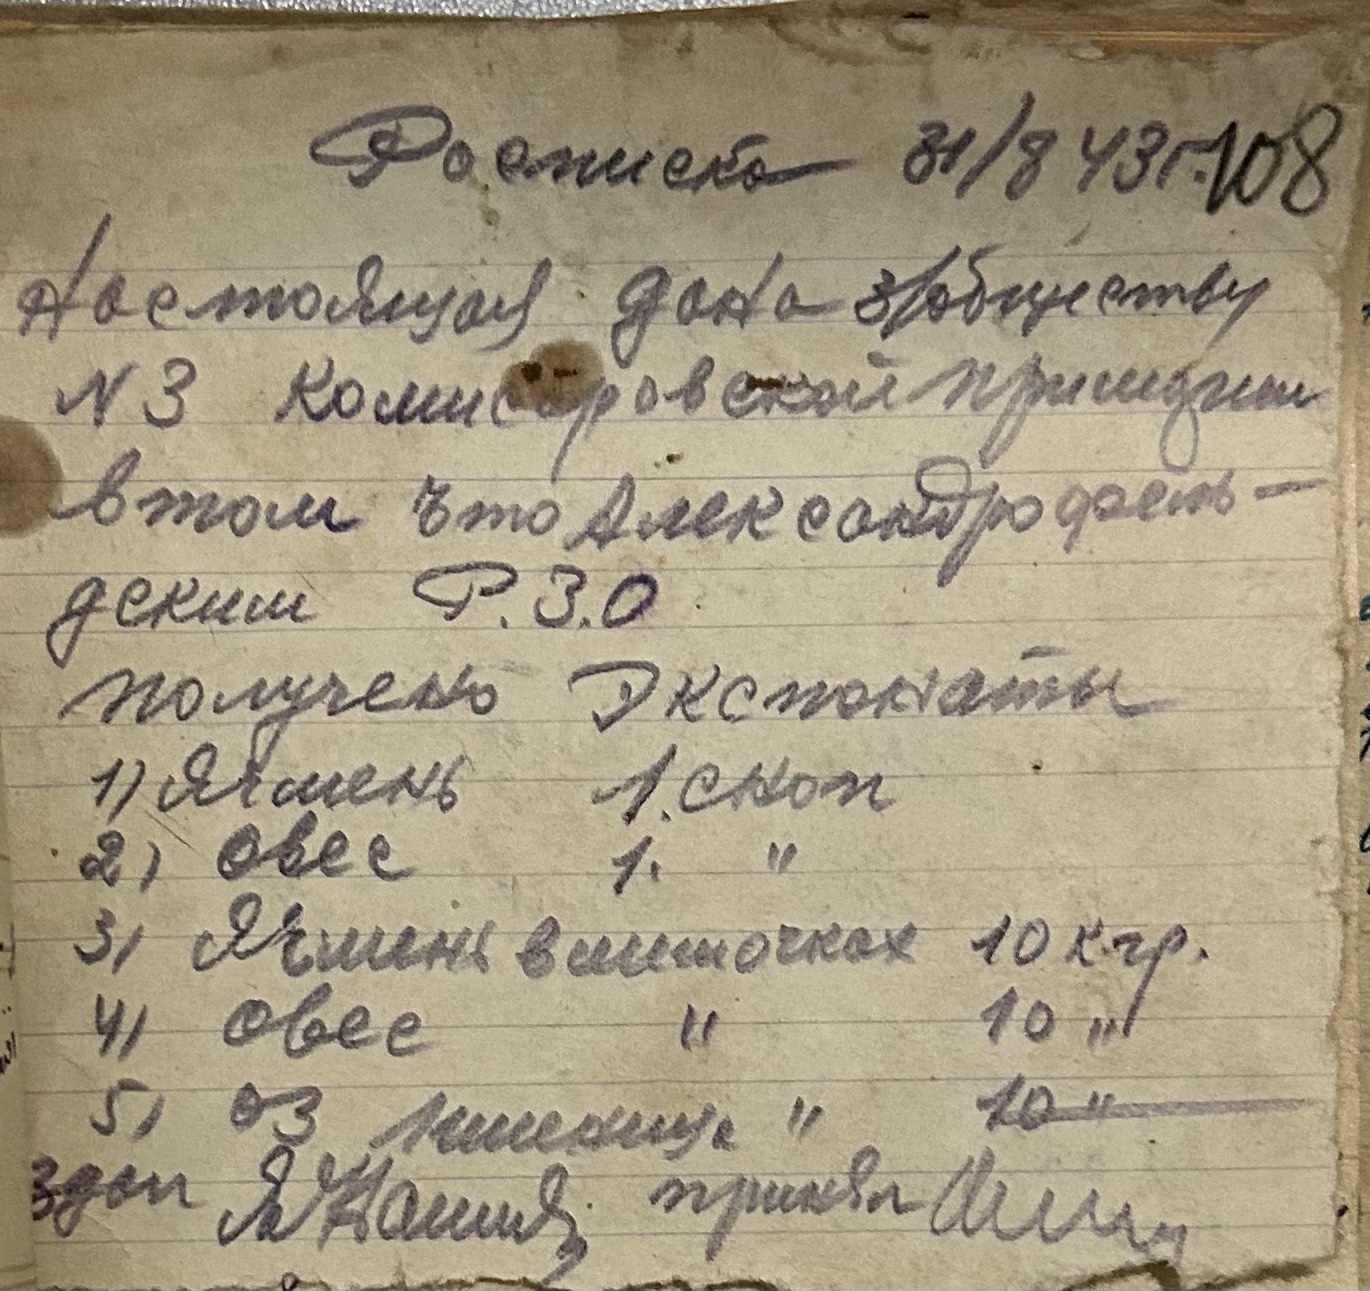 Росписка 31/8 43 г. 108
Настоящая дана з/обществу
N 3 Комисаровской
в том что Александрофель-
дским Р.З.О
получено Экспонаты
1) Ячмень 1. сноп
2) Овес 1. "
3) Ячмень в мешочках 10 кгр.
4) Овес " 10 "
5) оз пшеница " 10 "
здал принял